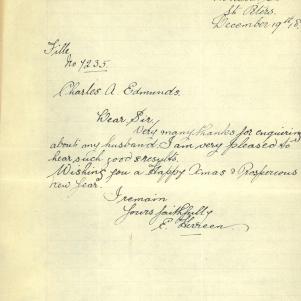 St Peters.
December 19th 18.
File
No 7235.
Charles A. Edmunds.
Dear Sir,
Very many thanks for enquiring
about my husband. I am very pleased to
hear such good results.
Wishing you a Happy Xmas & Prosperous
new Year.
I remain
Yours faithfully
E.